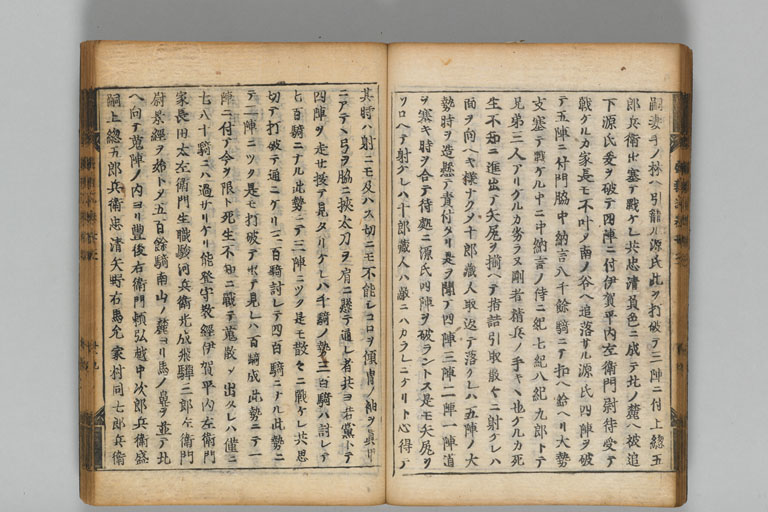 嗣妻手ノ林ヘ引籠ル源氏此ヲ打破テ三陣ニ付上總五
郎兵衛出塞テ戦ケレ共忠清負色ニ成テ北ノ麓ヘ被追
下源氏爰ヲ破テ四陣ニ付伊賀平内左衛門尉待受テ
戦ケルカ家長モ不叶メ南ノ谷ヘ追落サル源氏四陣ヲ破
テ五陣ニ付門脇中納言八千餘騎ニテ扣ヘ給ヘリ大勢
支塞テ戦ケル中ニ中納言ノ侍ニ紀七紀八紀九郎トテ
兄弟三人アリケルカ劣ラヌ剛者精兵ノ手キヽ也ケルカ死
生不知ニ進出テ矢尻ヲ揃ヘテ指詰引取散々ニ射ケレハ
面ヲ向ヘキ様ナクメ十郎蔵人取返テ落ケレハ五陣ノ大
勢時ヲ造懸テ責付タリ是ヲ聞テ四陣三陣二陣一陣道
ヲ塞キ時ヲ合テ待処ニ源氏四陣ヲ破ラントス是モ矢尻ヲ
ソロヘテ射ケレハ十郎蔵人ハ敵ニハカラレニケリト心得テ
其時ハ射ニモ及ハス切ニモ不能シコロヲ傾冑ノ袖ヲ真甲
ニアテヽ弓ヲ脇ニ挾太刀ヲ肩ニ懸テ通レ者共ヨ若黨トテ
四陣ヲ走セ授テ見タリケレハ千騎ノ勢三百騎ハ討レテ
七百騎ニナル此勢ニテ三陣ニツク是モ散々ニ戦ケレ共思
切テ打破テ通ニケリ三百騎討レテ四百騎ニナル此勢ニ
テ二陣ニツク是モ打破テハセテ見レハ百騎成此勢ニテ一
陣ニ付テ今ヲ限ト死生不知ニ戦テ蒐散メ出タレハ僅ニ
七八十騎ニハ過サリケリ能登守教經伊賀平内左衛門
家長田太左衛門生職駿河兵衛光成飛騨三郎左衛門
尉景經ヲ始トメ五百餘騎南山ノ麓ヨリ馬ノ鼻ヲ並テ北
ヘ向テ蒐陣ノ内ヨリ豊後右衛門頼弘越中次郎兵衛盛
嗣上總五郎兵衛忠清矢野右馬允家村同七郎兵衛